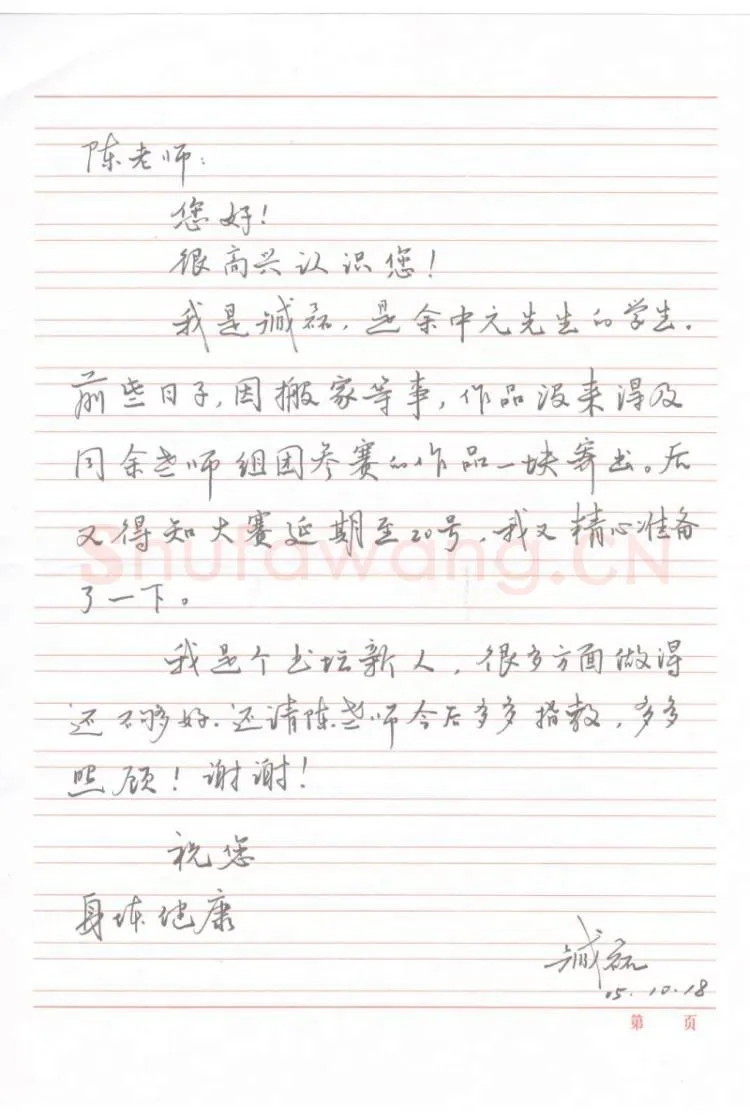 陈老师：
您好！
很高兴认识您！
我是臧磊，是余中元先生的学生。
前些日子，因搬家等事，作品没来得及
同余老师组团参赛的作品一块寄出。后
又得知大赛延期至20号，我又精心准备
了一下。
Shufawang.CN
我是个书坛新人，很多方面做得
还不够好.还请陈老师今后多多指教，多多
照顾！谢谢！
祝您
身体健康
臧磊
05.10.18
第 页